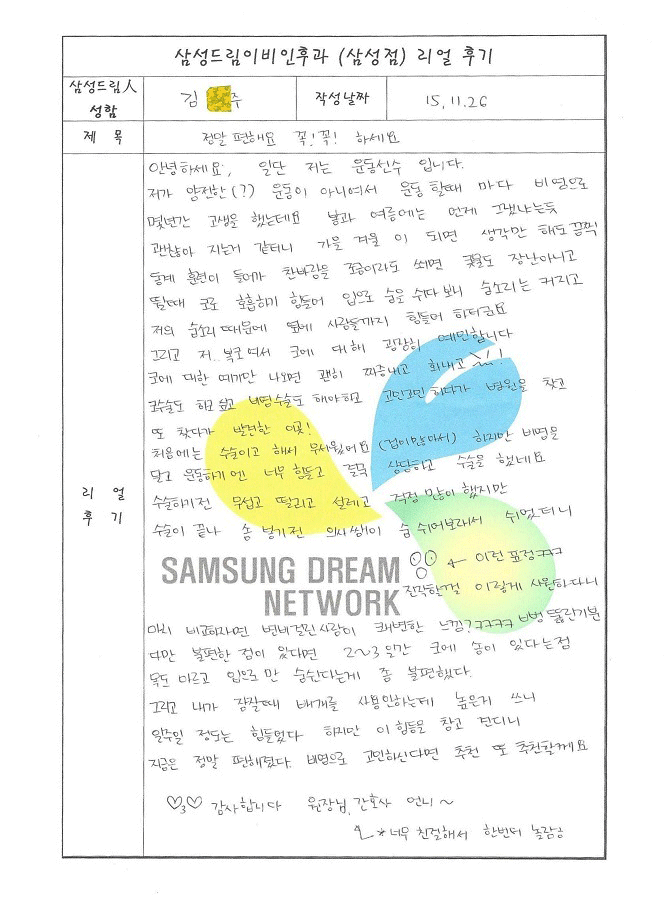 삼성드림이비인후과 (삼성점) 리얼 후기
삼성드림人 성함
김 주
작성날짜
15.11.26
제 목
정말 편해요 꼭! 꼭! 하세요
리 얼 후 기
안녕하세요, 일단 저는 운동선수 입니다.
저가 얌전한(?) 운동이 아니여서 운동 할때 마다 비염으로
몇년간 고생을 했는데요 봄과 여름에는 언제 그랬냐는듯
괜찮아 지는거 같더니 가을 겨울 이 되면 생각만 해도 끔찍
동계 훈련이 들어가 찬바람을 조금이라도 쐬면 콧물도 장난아니고
뛸때 코로 호흡하기 힘들어 입으로 숨을 쉬다 보니 숨소리는 커지고
저의 숨소리 때문에 옆에 사람들까지 힘들어 하더군요
그리고 저. 복코여서 코에 대해 굉장히 예민합니다
코에 대한 얘기만 나오면 괜히 짜증내고 화내고
코수술도 하고 싶고 비염수술도 해야하고 고민고민 하다가 병원을 찾고
또 찾다가 발견한 이곳!
처음에는 수술이고 해서 무서웠어요 (겁이많아서) 하지만 비염을
달고 운동하기엔 너무 힘들고 결국 상담하고 수술을 했네요
수술하기전 무섭고 떨리고 설레고 걱정 많이 했지만
수술이 끝나 솜 넣기전 의사쌤이 숨 쉬어보라해서 쉬었더니
이런 표정ㅋㅋㅋ
진작할껄 이렇게 시원하다니
SAMSUNG DREAM
NETWORK
마치 비교하자면 변비걸린사람이 쾌변한 느낌?ㅋㅋㅋㅋ 뻥 뚫린기분
다만 불편한 점이 있다면 2~3일간 코에 솜이 있다는점
목도 마르고 입으로 만 숨쉰다는게 좀 불편했다.
그리고 내가 잠잘때 베개를 사용안하는데 높은거 쓰니
일주일 정도는 힘들었다 하지만 이 힘듬을 참고 견디니
지금은 정말 편해졌다. 비염으로 고민하신다면 추천 또 추천할께요
♡3♡ 감사합니다 원장님, 간호사 언니~
*너무 친절해서 한번더 놀람